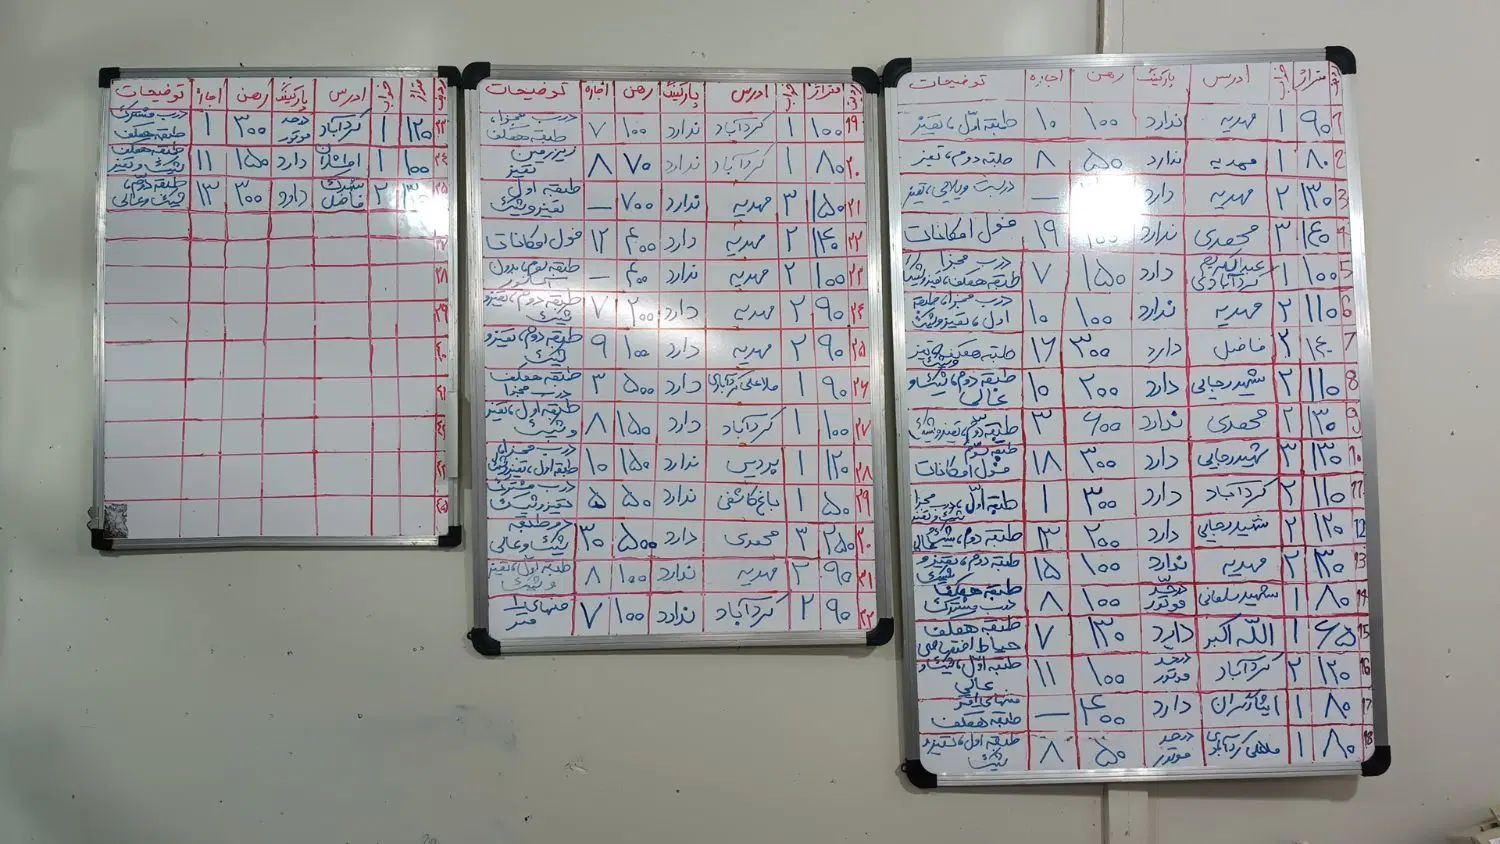 ردیف متراژ خواب ادرس پارکینگ رهن اجاره توضیحات
1 ۹۰ ۱ مهدیه ندارد ۱۰۰ ۱۰ طبقه اوّل، تمیز
2 ۸۰ ۱ مهدیه ندارد ۵۰ ۸ طبقه دوم، تمیز
3 ۱۳۰ ۲ مهدیه دارد — دربست ویلایی، تمیز
4 ۱۴۰ ۳ محمدی ندارد ۱۹ فول امکانات
5 ۱۰۰ ۱ عبدالکریم گردآبادی دارد ۱۵۰ ۷ درب مجزا طبقه همکف، تمیز و شیک
6 ۱۱۰ ۲ مهدیه ندارد ۱۰۰ ۱۰ درب مجزا، طبقه اول، تمیز و شیک
7 ۱۴۰ ۳ فاضل دارد ۳۰۰ ۱۶ طبقه همکف، تمیز و شیک
8 ۱۱۰ ۲ شهید رجایی دارد ۲۰۰ ۱۰ طبقه دوم، شیک و عالی
9 ۱۳۰ ۲ محمدی ندارد ۶۰۰ ۳ طبقه دوم، تمیز و شیک
10 ۱۳۰ ۳ شهید رجایی دارد ۳۰۰ ۱۸ طبقه سوّم فول امکانات
11 ۱۱۰ ۲ گردآباد دارد ۳۰۰ ۱ طبقه اوّل، درب مجزا شیک و تمیز
12 ۱۲۰ ۲ شهید رجایی دارد ۲۰۰ ۱۳ طبقه دوم، شیک و عالی
13 ۱۳۰ ۲ مهدیه ندارد ۱۰۰ ۱۵ طبقه دوم، تمیز و شیک
14 ۸۰ ۱ شهید سلمانی درحد موتور ۱۰۰ ۸ طبقه همکف درب مشترک
15 ۶۵ ۱ الله اکبر دارد ۱۳۰ ۷ طبقه همکف حیاط اختصاصی
16 ۱۲۰ ۲ گردآباد درحد موتور ۱۰۰ ۱۱ طبقه اوّل، شیک و عالی
17 ۸۰ ۱ ایثارگران دارد ۴۰۰ — منهای متر طبقه همکف
18 ۸۰ ۱ ملاعلی گردآبادی درحد موتور ۵۰ ۸ طبقه اول، تمیز و شیک
ردیف متراژ خواب ادرس پارکینگ رهن اجاره توضیحات
۱۹ ۱۰۰ ۱ گردآباد ندارد ۱۰۰ ۷ درب مجزا، طبقه همکف
۲۰ ۸۰ ۱ گردآباد ندارد ۷۰ ۸ زیرزمین تمیز
۲۱ ۱۵۰ ۳ مهدیه ندارد ۷۰۰ — طبقه اول تمیز و شیک
۲۲ ۱۴۰ ۲ مهدیه دارد ۴۰۰ ۱۲ فول امکانات
۲۳ ۱۰۰ ۲ مهدیه ندارد ۴۰۰ — طبقه سوم، بدون آسانسور
۲۴ ۹۰ ۲ مهدیه دارد ۲۰۰ ۷ طبقه دوم، تمیز و شیک
۲۵ ۹۰ ۲ مهدیه دارد ۱۰۰ ۹ طبقه دوم، تمیز و شیک
۲۶ ۹۰ ۱ ملاعلی گردآبادی دارد ۵۰۰ ۳ طبقه همکف درب مجزا
۲۷ ۱۰۰ ۱ گردآباد دارد ۱۵۰ ۸ طبقه اول، تمیز و شیک
۲۸ ۱۲۰ ۱ پردیس ندارد ۱۵۰ ۱۰ درب مجزا، طبقه اول، تمیز و شیک
۲۹ ۵۰ ۱ باغ کاشفی ندارد ۵۰ ۵ درب مشترک تمیز و شیک
۳۰ ۲۵۰ ۳ محمدی دارد ۵۰۰ ۳۰ دو طبقه شیک و عالی
۳۱ ۹۰ ۲ مهدیه ندارد ۱۰۰ ۸ طبقه اوّل، تمیز و شیک
۳۲ ۹۰ ۲ گردآباد ندارد ۱۰۰ ۷ منهای متر
ردیف متراژ خواب ادرس پارکینگ رهن اجاره توضیحات
۳۳ ۱۲۰ ۱ گردآباد درحد موتور ۳۰۰ ۱ درب مشترک طبقه همکف
۳۴ ۱۰۰ ۱ دارد ۱۵۰ ۱۱ طبقه همکف شیک و تمیز
۳۵ ۱۳۰ ۲ شهرک فاضل دارد ۳۰۰ ۱۳ طبقه دوّم، شیک و عالی
۳۷
۳۸
۳۹
۴۰
۴۱
۴۲
۴۳